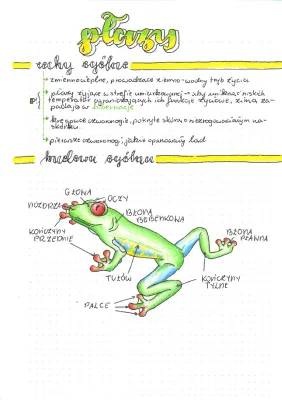 płazy
cechy ogólne
→ zmiennocieplne, prowadzące ziemno-wodny tryb życia
→ płazy żyjące w strefie umiarkowanej → aby uniknąć niskich
temperatur ograniczających ich funkcje życiowe, zimą za-
padają w hibernację
→ kręgowce czworonogie, pokryte skórą o niezrogowaciałym na-
skórku
→ pierwsze czworonogi, jakie opanowały ląd
budowa ogólna
GŁOWA
OCZY
NOZDRZA
BŁONA
BĘBENKOWA
KOŃCZYNY
PRZEDNIE
BŁONA
PŁAWNA
TUŁÓW
KOŃCZYNY
TYLNE
PALCE